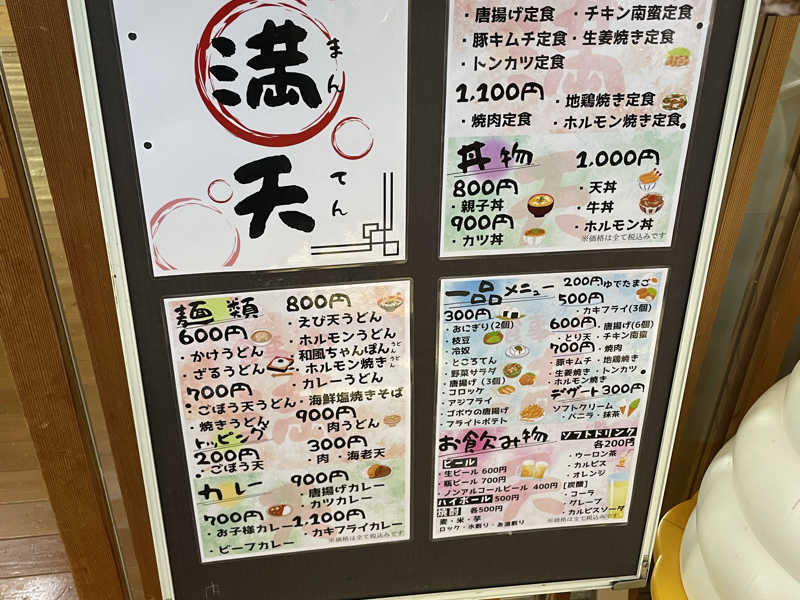 満天
まんてん
・唐揚げ定食 ・チキン南蛮定食
・豚キムチ定食 ・生姜焼き定食
・トンカツ定食
1,100円 ・地鶏焼き定食
・焼肉定食 ・ホルモン焼き定食
丼物
800円
・親子丼
900円
・カツ丼
1,000円
・天丼
・牛丼
・ホルモン丼
※価格は全て税込みです
麺類
600円
・かけうどん
・ざるうどん
700円
・ごぼう天うどん
・焼きうどん
800円
・えび天うどん
・ホルモンうどん
・和風ちゃんぽんうどん
・ホルモン焼きうどん
・カレーうどん
・海鮮塩焼きそば
900円
・肉うどん
トッピング
200円
・ごぼう天
300円
・肉 ・海老天
カレー
700円
・お子様カレー
・ビーフカレー
900円
・唐揚げカレー
・カツカレー
1,100円
・カキフライカレー
※価格は全て税込みです
一品メニュー
200円 ゆでたまご
300円
・おにぎり(2個)
・枝豆
・冷奴
・ところてん
・野菜サラダ
・唐揚げ(3個)
・コロッケ
・アジフライ
・ゴボウの唐揚げ
・フライドポテト
500円
・カキフライ(3個)
600円 ・唐揚げ(6個)
・とり天 ・チキン南蛮
700円 ・焼肉
・豚キムチ ・地鶏焼き
・生姜焼き ・トンカツ
・ホルモン焼き
デザート 300円
ソフトクリーム
・バニラ ・抹茶
お飲み物
ビール
・生ビール 600円
・瓶ビール 700円
・ノンアルコールビール 400円
ハイボール 500円
焼酎 各500円
麦・米・芋
ロック・水割り・お湯割り
ソフトドリンク
各200円
・ウーロン茶
・カルピス
・オレンジ
[炭酸]
・コーラ
・グレープ
・カルピスソーダ
※価格は全て税込みです